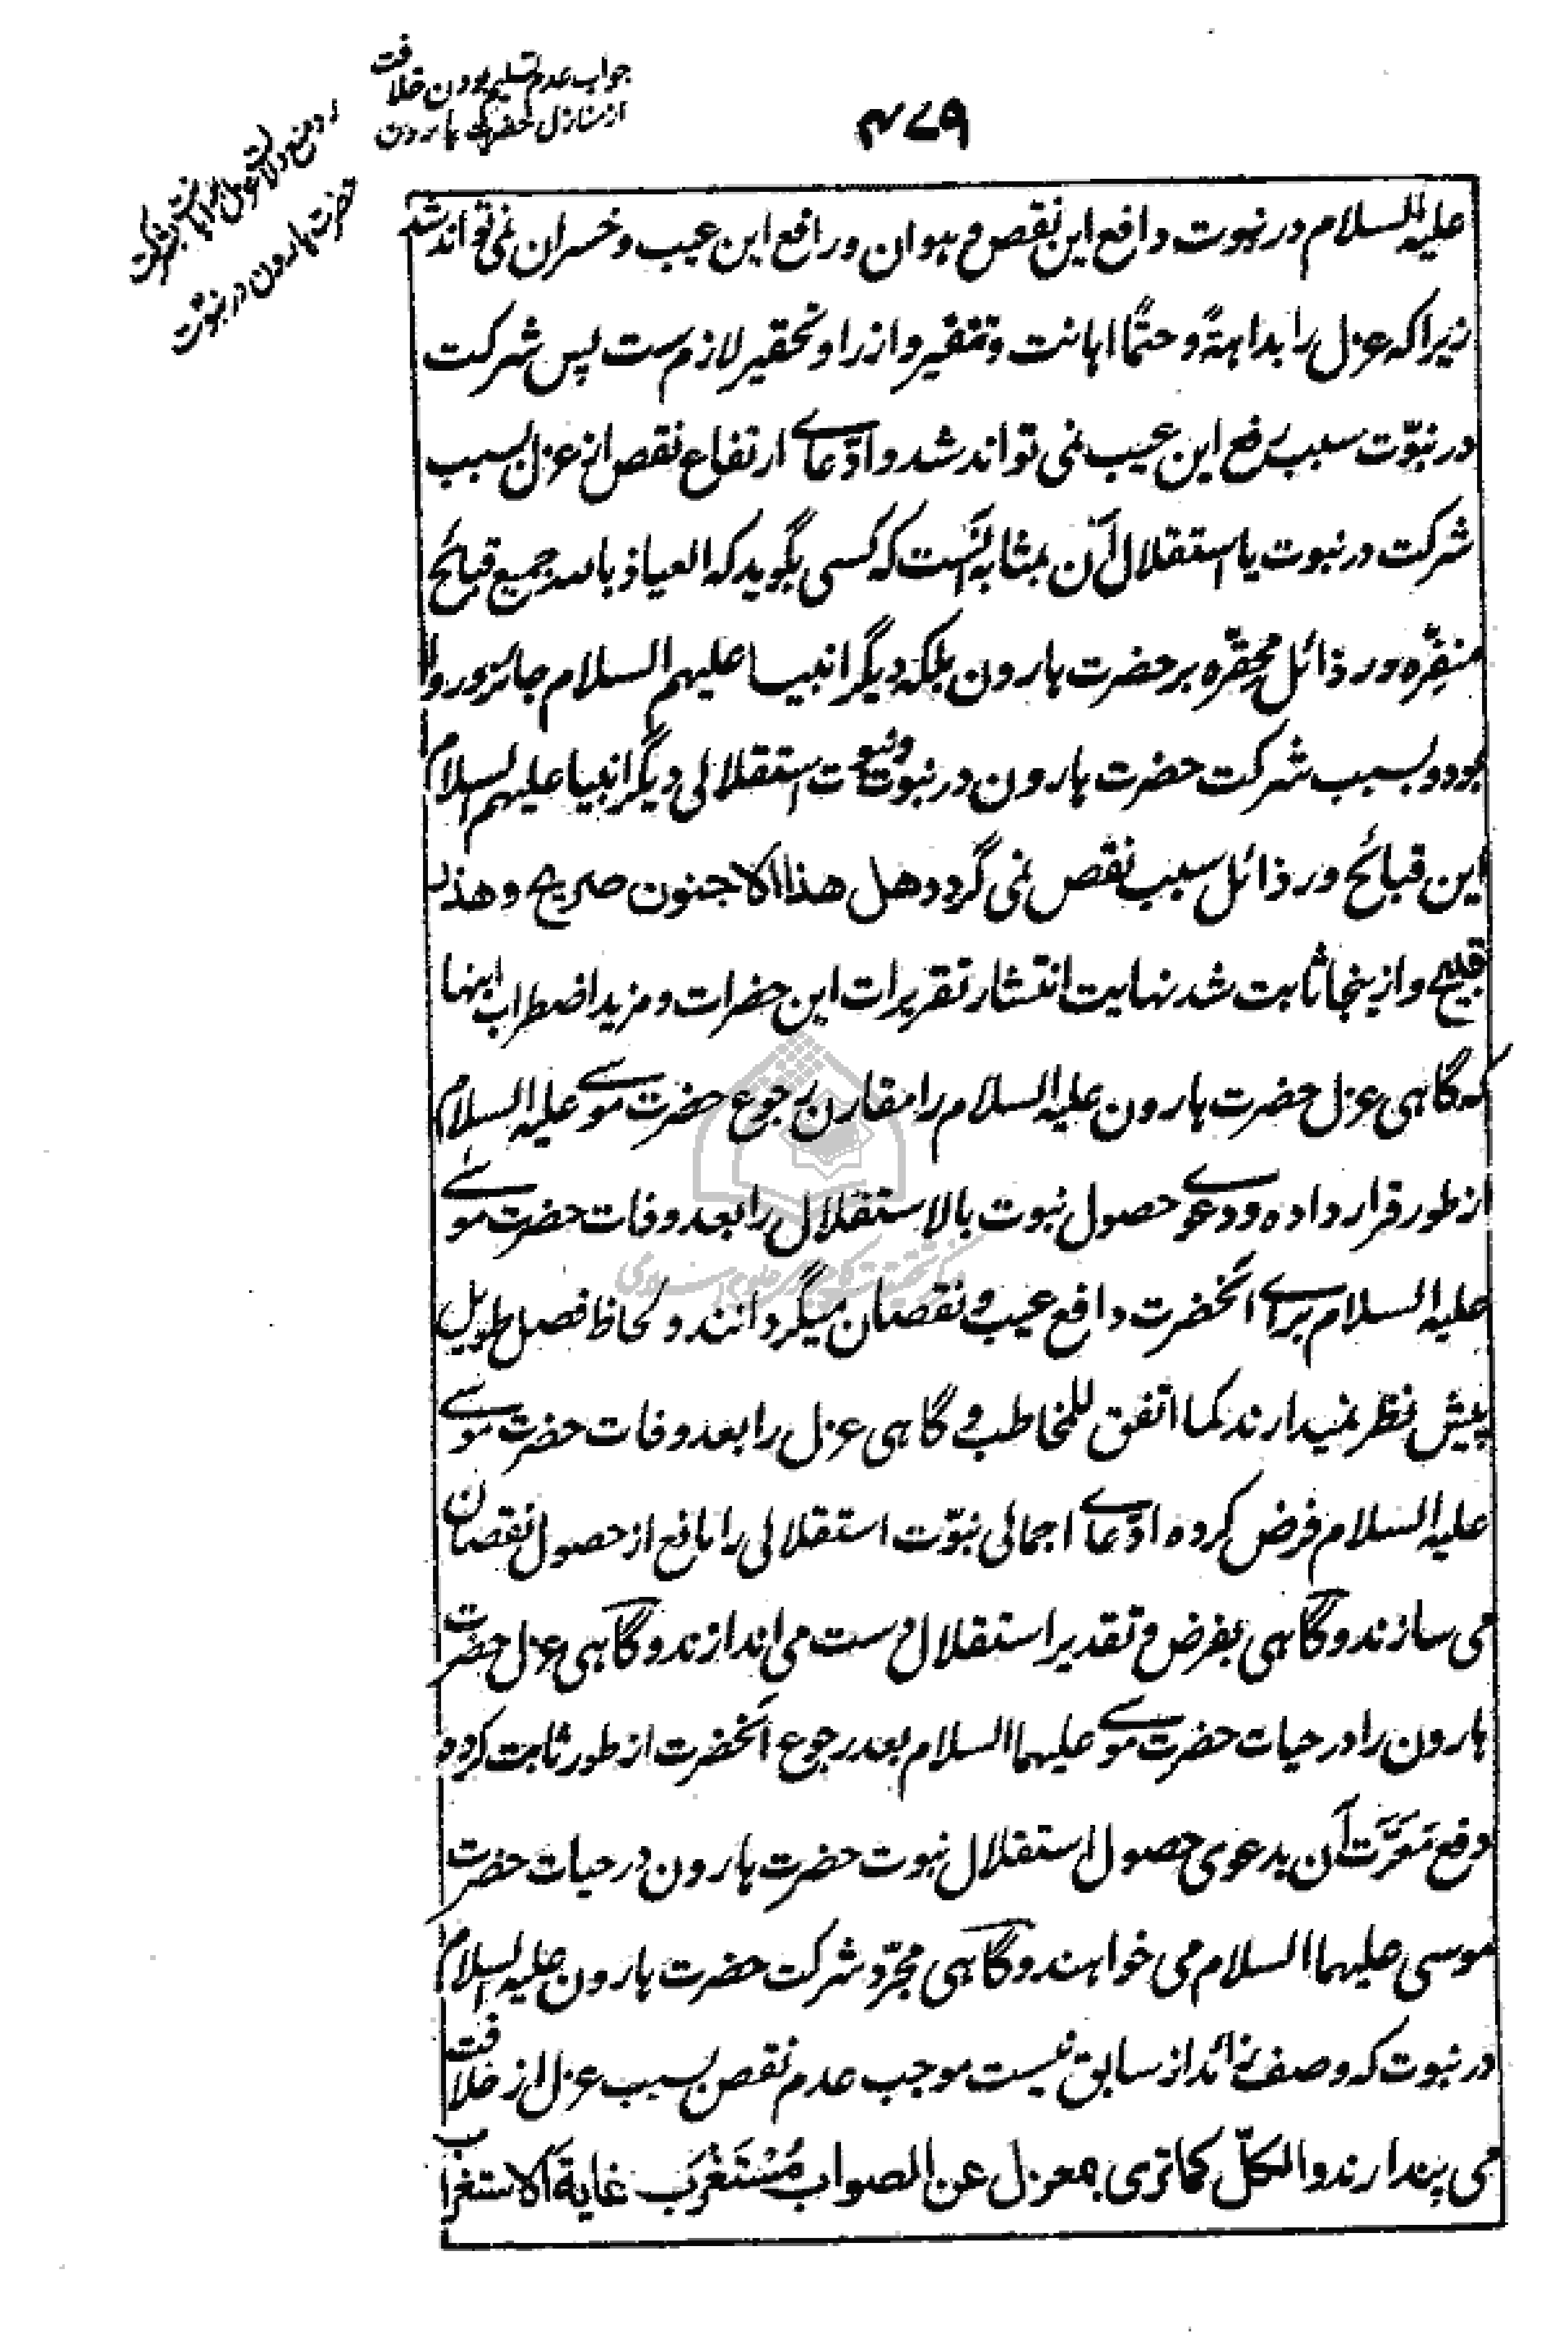 جواب عدم تسلیم بودن خلافت
از منازل حضرت هارون
۴۷۹
حضرت هارون در نبوت
علیه السلام در نبوت دافع این نقص و هوان و رافع این عیب و خسران نمی تواند شد
زیرا که عزل را بداهةً و حتمًا اهانت و تنفیر و ازرا و تحقیر لازم ست پس شرکت
در نبوّت سبب رفع این عیب نمی تواند شد و ادّعای ارتفاع نقص از عزل بسبب
شرکت در نبوت یا استقلال آن بمثابه آنست که کسی بگوید که العیاذ بالله جمیع قبائح
منفّره و رذائل محقّره بر حضرت هارون بلکه دیگر انبیا علیهم السلام جائز و روا
بود و بسبب شرکت حضرت هارون در نبوت و نبوت استقلالی دیگر انبیا علیهم السلام
این قبائح و رذائل سبب نقص نمی گردد هل هذا الا جنون صریح و هذر
قبیح و ازینجا ثابت شد نهایت انتشار تقریرات این حضرات و مزید اضطراب اینها
که گاهی عزل حضرت هارون علیه السلام را مقارن رجوع حضرت موسی علیه السلام
از طور قرار داده و دعوی حصول نبوت بالاستقلال را بعد وفات حضرت موسی
علیه السلام برای آنحضرت دافع عیب و نقصان میگردانند و لحاظ فصل طویل
پیش نظر نمیدارند کما اتفق للمخاطب و گاهی عزل را بعد وفات حضرت موسی
علیه السلام فرض کرده ادّعای اجمالی نبوّت استقلالی را مانع از حصول نقصان
می سازند و گاهی بفرض و تقدیر استقلال دست می اندازند و گاهی عزل حضرت
هارون را در حیات حضرت موسی علیهما السلام بعد رجوع آنحضرت از طور ثابت کرده
دفع مَعَرَّت آن بدعوی حصول استقلال نبوت حضرت هارون در حیات حضرت
موسی علیهما السلام می خواهند و گاهی مجرّد شرکت حضرت هارون علیه السلام
در نبوت که وصف زائد از سابق نیست موجب عدم نقص بسبب عزل از خلافت
می پندارند و الکلّ کما تری بمعزل عن الصواب مُسْتَغْرَب غایةَ الاستغراب